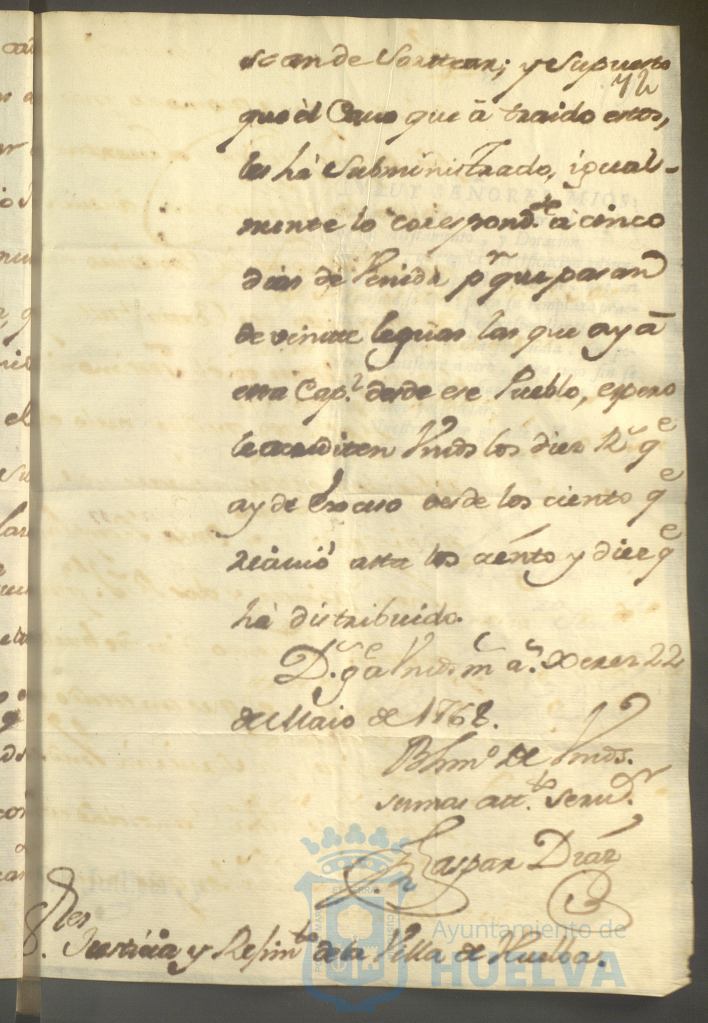 de Sorttear; y Supuesto
72
que èl Cavo que à traido estos,
les há Subministrado, igual-
mente lo correspond.te a cinco
dias de Venida p.r que pasan
de veintte leguas las que ay à
essa Cap.l desde ese Pueblo, espero
le acrediten Vmds los diez R.s q.e
ay de Exceso desde los ciento q.e
reciuió atta los ciento y diez q.e
há distribuido.
D.s g.e a Vmds m.s a.s Xerez 22
de Maio de 1768.
B l m.o de Vmds.
su mas att.to seru.r
Gaspar Diaz
S.res Justicia y Rejim.to de la Villa de Huelba.
Ayuntamiento de
HUELVA